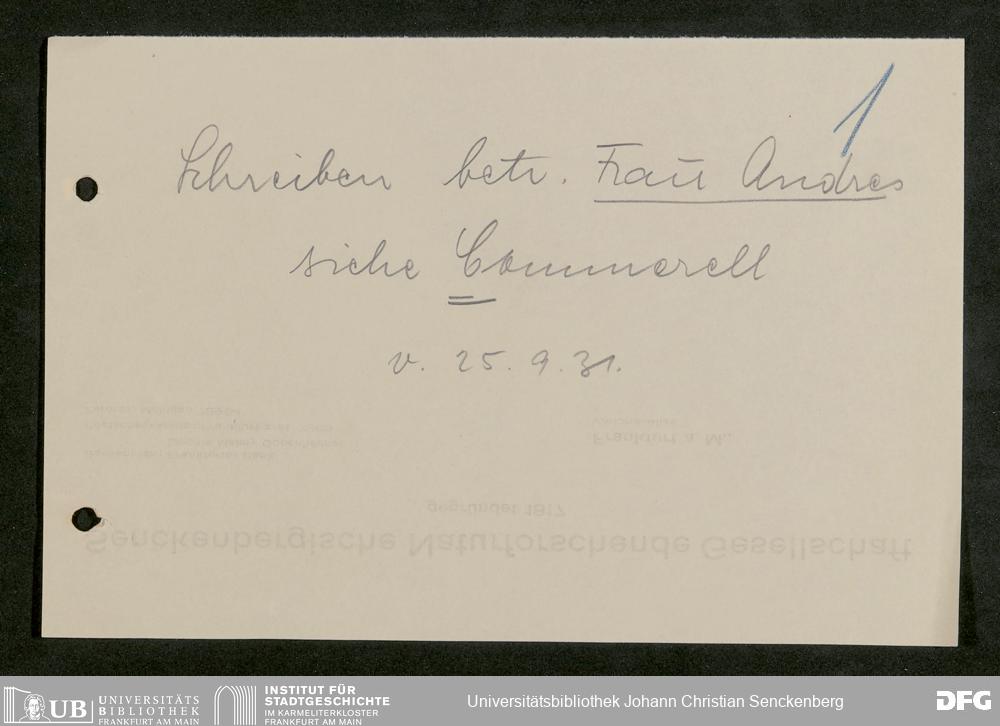 1
Schreiben betr. Frau Andres
siehe Commerell
v. 25. 9. 31.
Frankfurt a. M.,
gegründet 1817
Senckenbergische Naturforschende Gesellschaft
UB UNIVERSITÄTS BIBLIOTHEK FRANKFURT AM MAIN
INSTITUT FÜR STADTGESCHICHTE IM KARMELITERKLOSTER FRANKFURT AM MAIN
Universitätsbibliothek Johann Christian Senckenberg
DFG